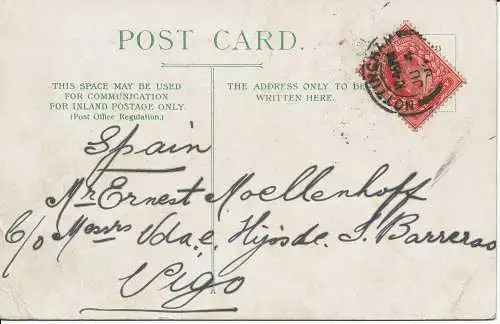 POST CARD.
THIS SPACE MAY BE USED
FOR COMMUNICATION
FOR INLAND POSTAGE ONLY.
(Post Office Regulation.)
THE ADDRESS ONLY TO BE
WRITTEN HERE.
Spain
Mr Ernest Moellenhoff
C/o Messrs Vda. e. Hijos de. J. Barreras
Vigo